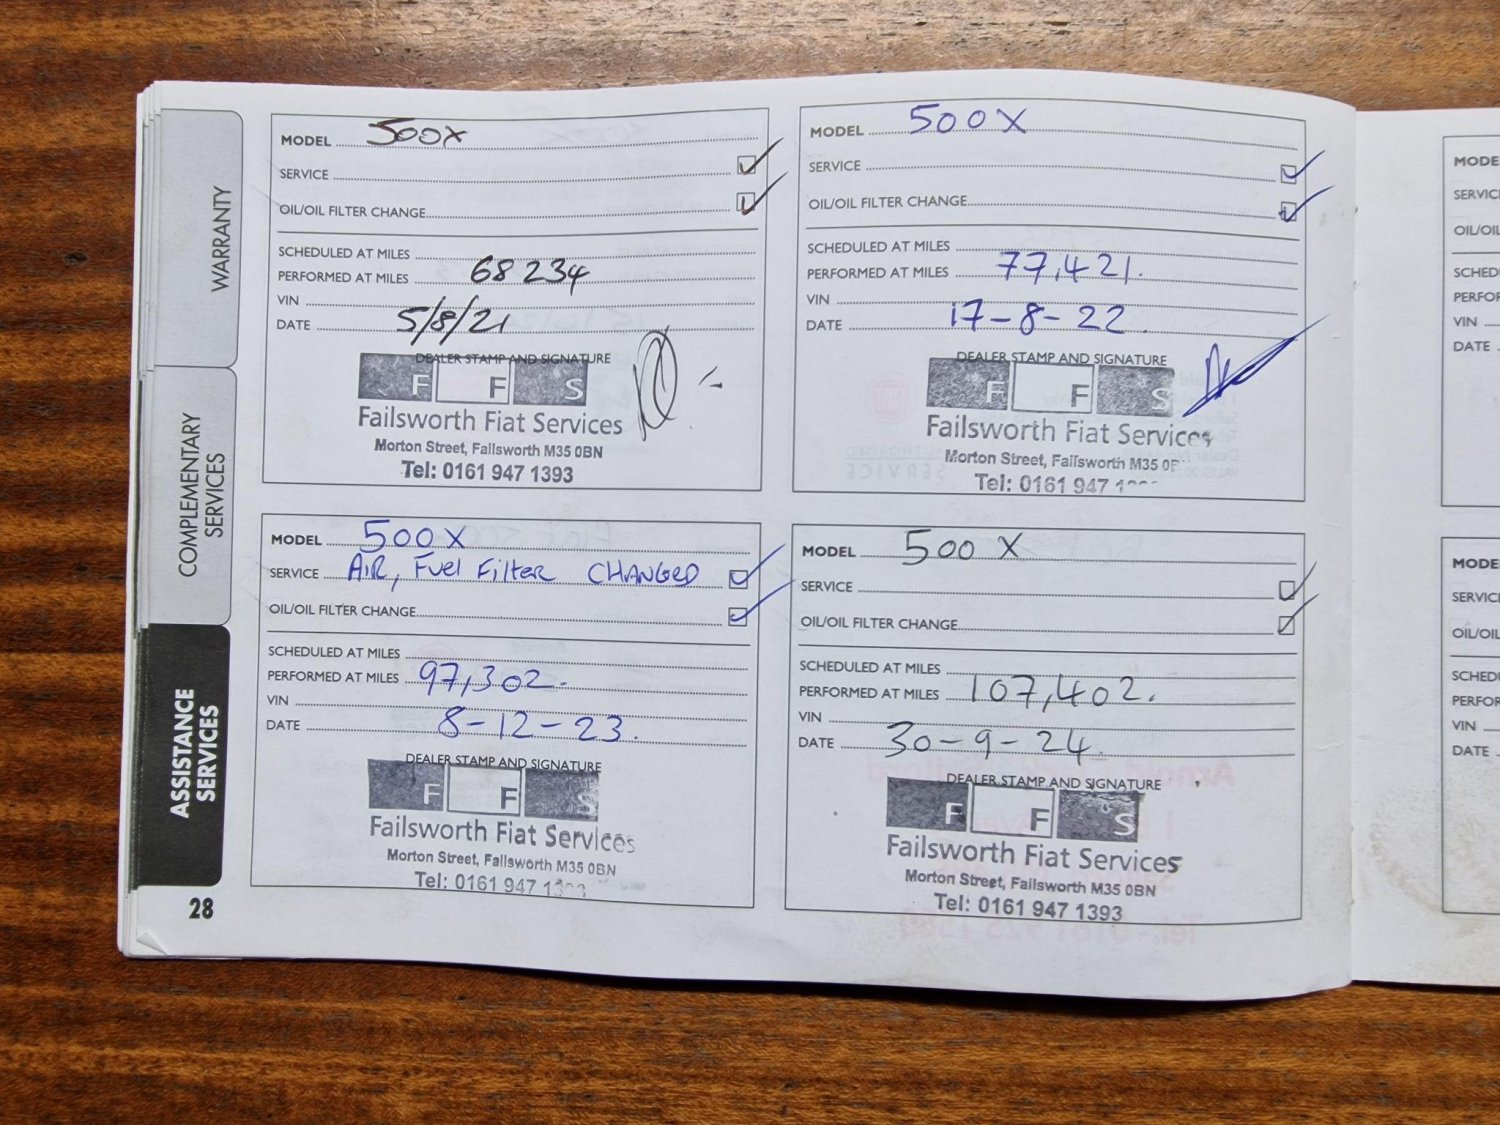 WARRANTY
COMPLEMENTARY
SERVICES
ASSISTANCE
SERVICES
28
MODEL 500X
SERVICE
OIL/OIL FILTER CHANGE
SCHEDULED AT MILES
PERFORMED AT MILES 68234
VIN
DATE 5/8/21
DEALER STAMP AND SIGNATURE
F F S
Failsworth Fiat Services
Morton Street, Failsworth M35 0BN
Tel: 0161 947 1393
MODEL 500X
SERVICE
OIL/OIL FILTER CHANGE
SCHEDULED AT MILES
PERFORMED AT MILES 77,421.
VIN
DATE 17-8-22.
DEALER STAMP AND SIGNATURE
F F S
Failsworth Fiat Services
Morton Street, Failsworth M35
Tel: 0161 947
MODEL 500X
SERVICE AIR, Fuel Filter CHANGED
OIL/OIL FILTER CHANGE
SCHEDULED AT MILES
PERFORMED AT MILES 97,302.
VIN
DATE 8-12-23.
DEALER STAMP AND SIGNATURE
F F S
Failsworth Fiat Services
Morton Street, Failsworth M35 0BN
Tel: 0161 947
MODEL 500X
SERVICE
OIL/OIL FILTER CHANGE
SCHEDULED AT MILES
PERFORMED AT MILES 107,402.
VIN
DATE 30-9-24.
DEALER STAMP AND SIGNATURE
F F S
Failsworth Fiat Services
Morton Street, Failsworth M35 0BN
Tel: 0161 947 1393
MODE
SERVIC
OIL/OIL
SCHED
PERFOR
VIN
DATE
MODE
SERVIC
OIL/OI
SCHEDU
PERFOR
VIN
DATE